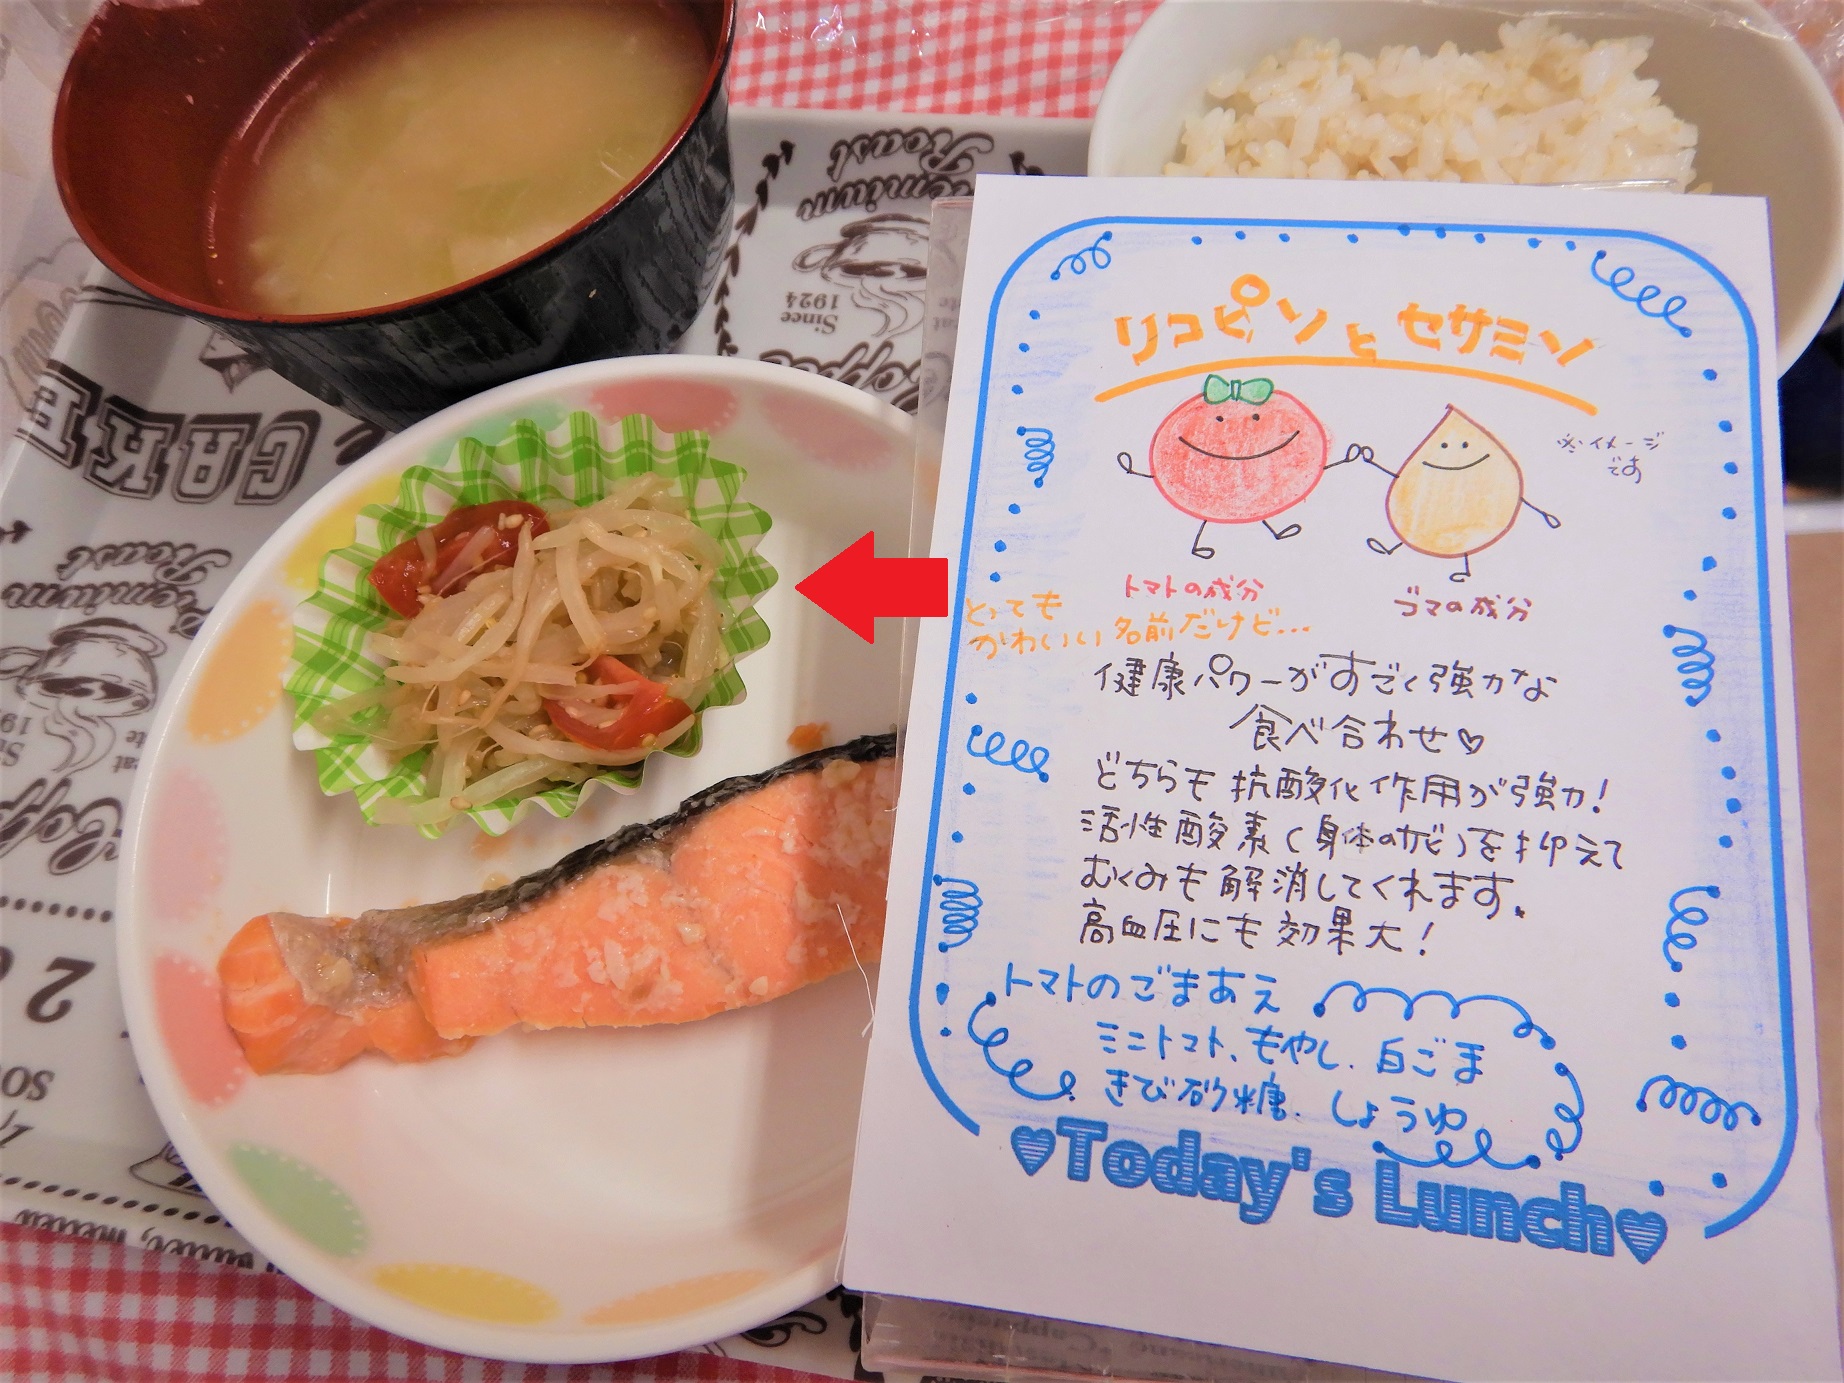 Premium
Roast
Since
1924
CAKE
Premium
Roast
リコピンとセサミン
※イメージ
です
トマトの成分
ゴマの成分
とっても
かわいい名前だけど…
健康パワーがすごく強力な
食べ合わせ♡
どちらも抗酸化作用が強力!
活性酸素(身体のサビ)を抑えて
むくみも解消してくれます。
高血圧にも効果大!
トマトのごまあえ
ミニトマト、もやし、白ごま
きび砂糖、しょうゆ
♥Today's Lunch♥